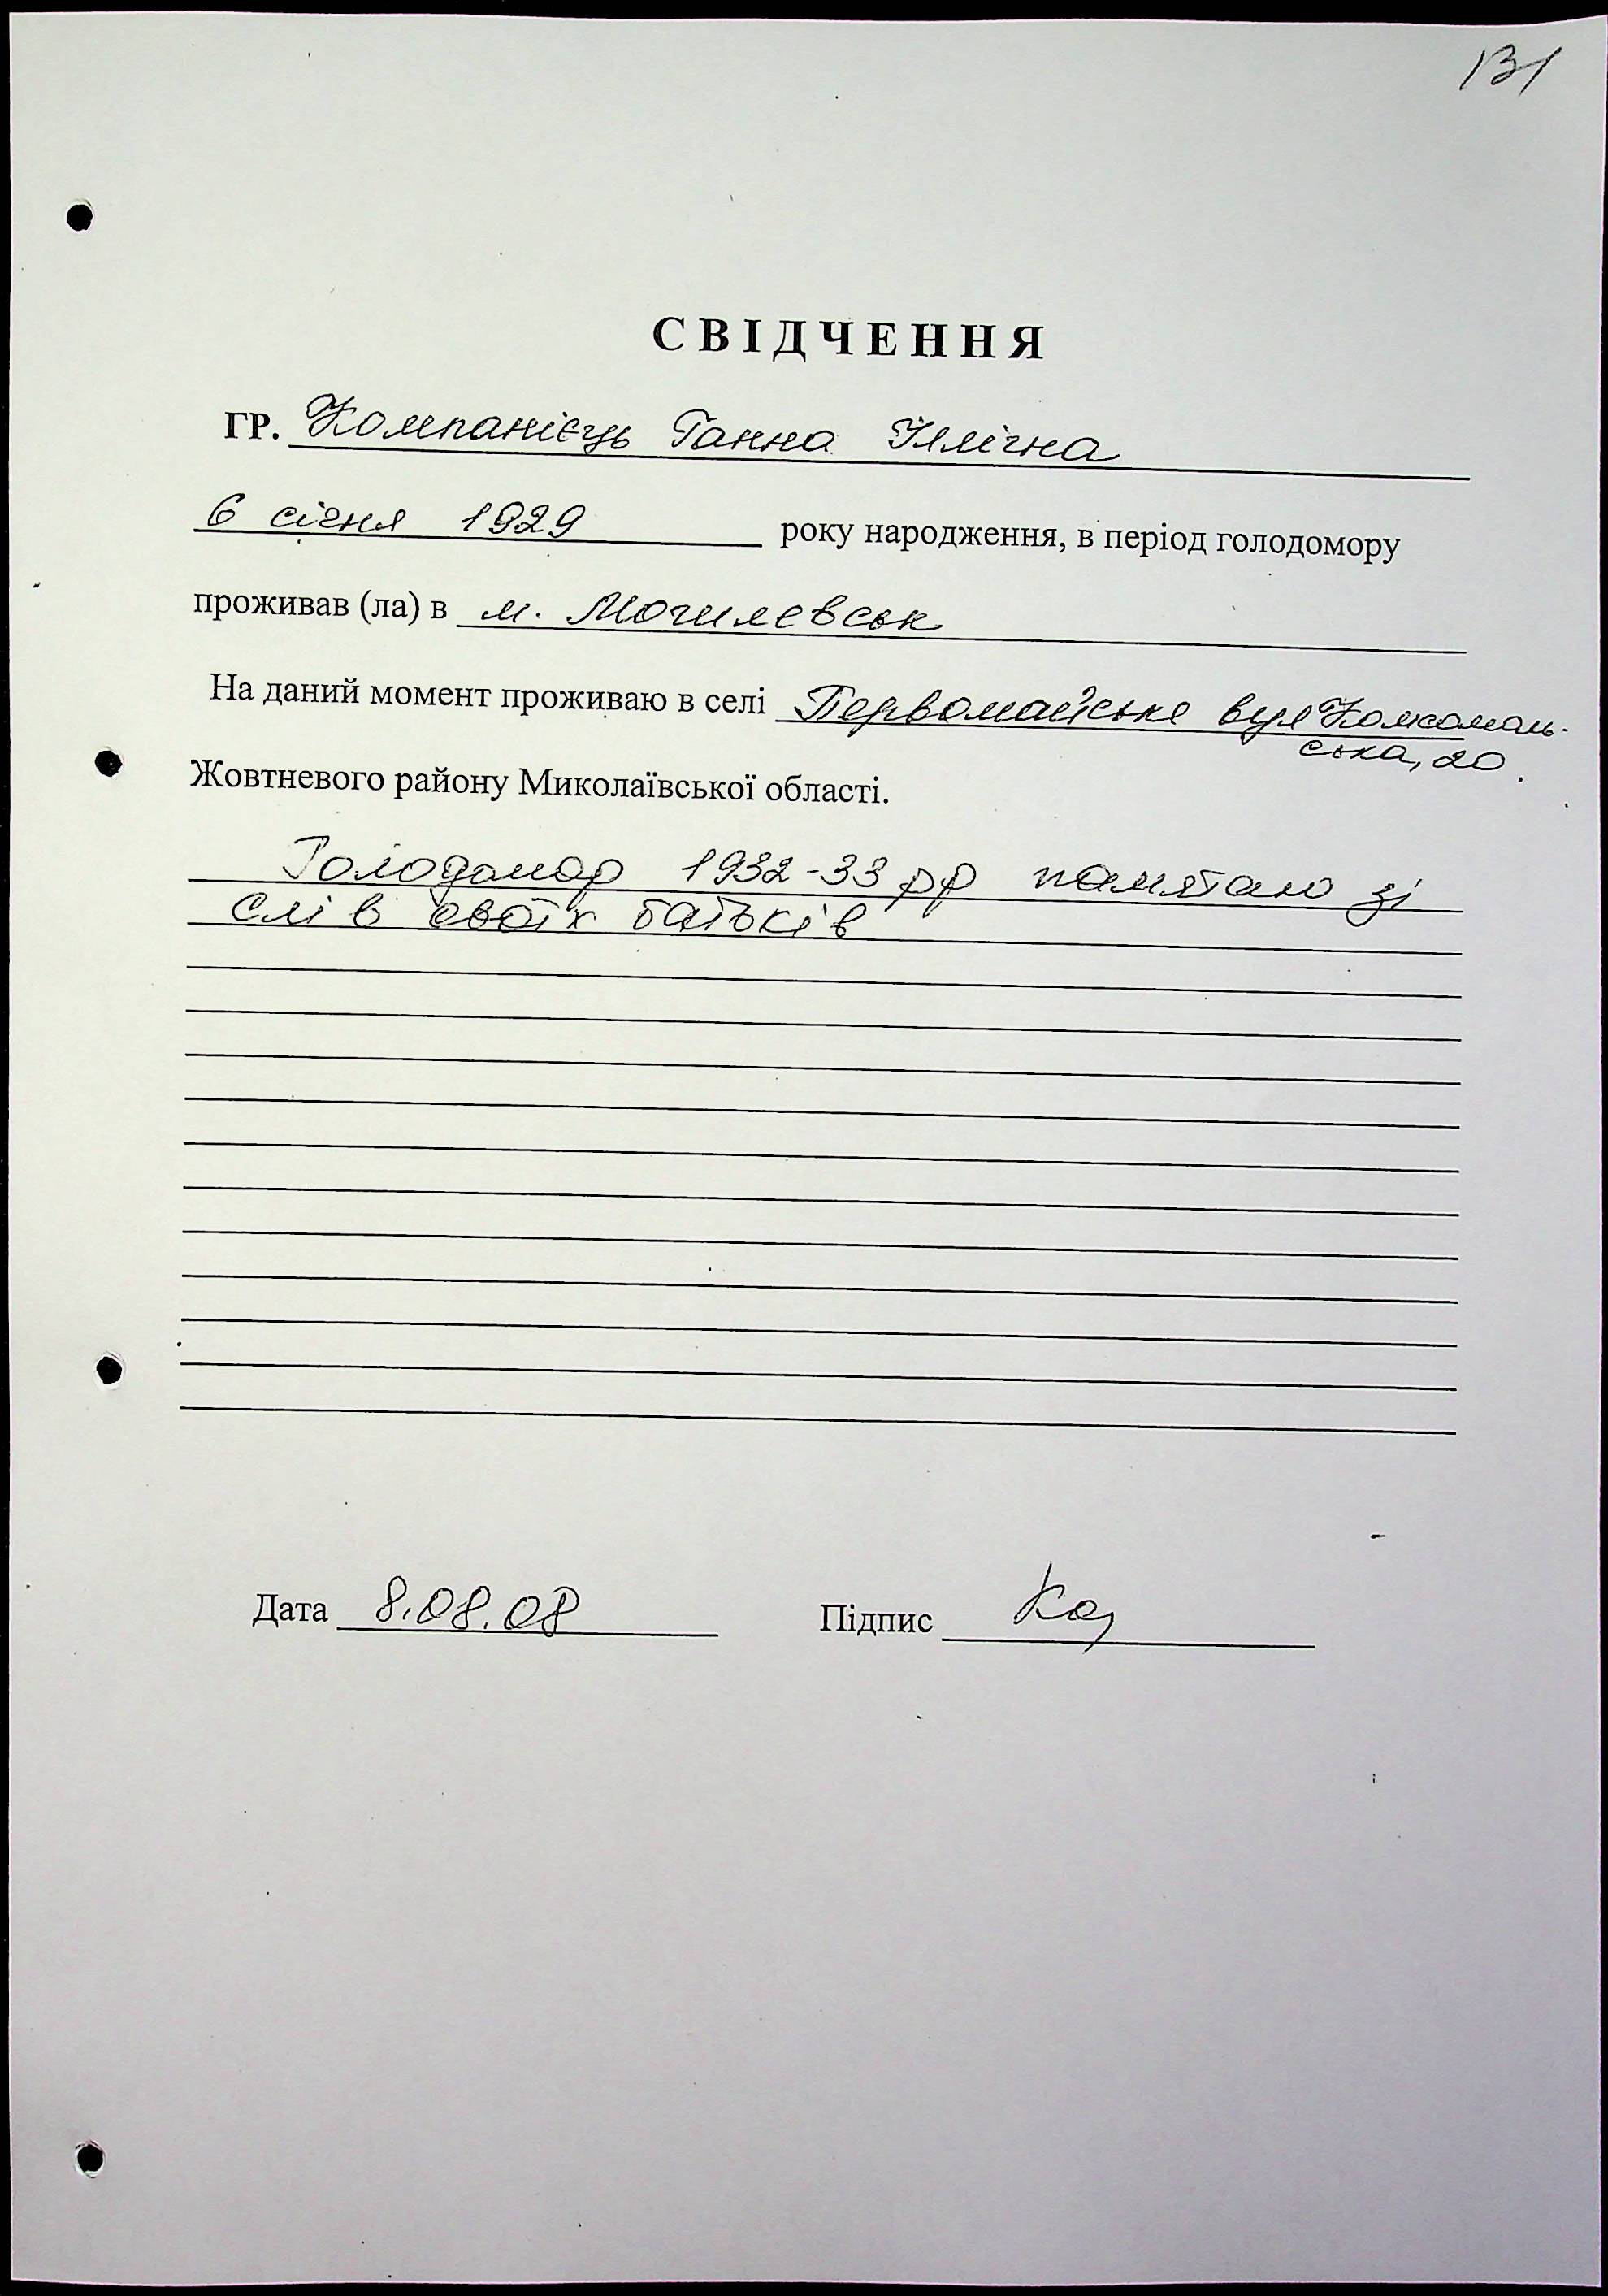 131
СВІДЧЕННЯ
ГР. Компанієць Ганна Іллічна
6 січня 1929 року народження, в період голодомору
проживав (ла) в м. Могилевськ
На даний момент проживаю в селі Первомайське вул Комсомоль-
ська, 20.
Жовтневого району Миколаївської області.
Голодомор 1932-33 рр памятаю зі
слів своїх батьків
Дата 8.08.08 Підпис